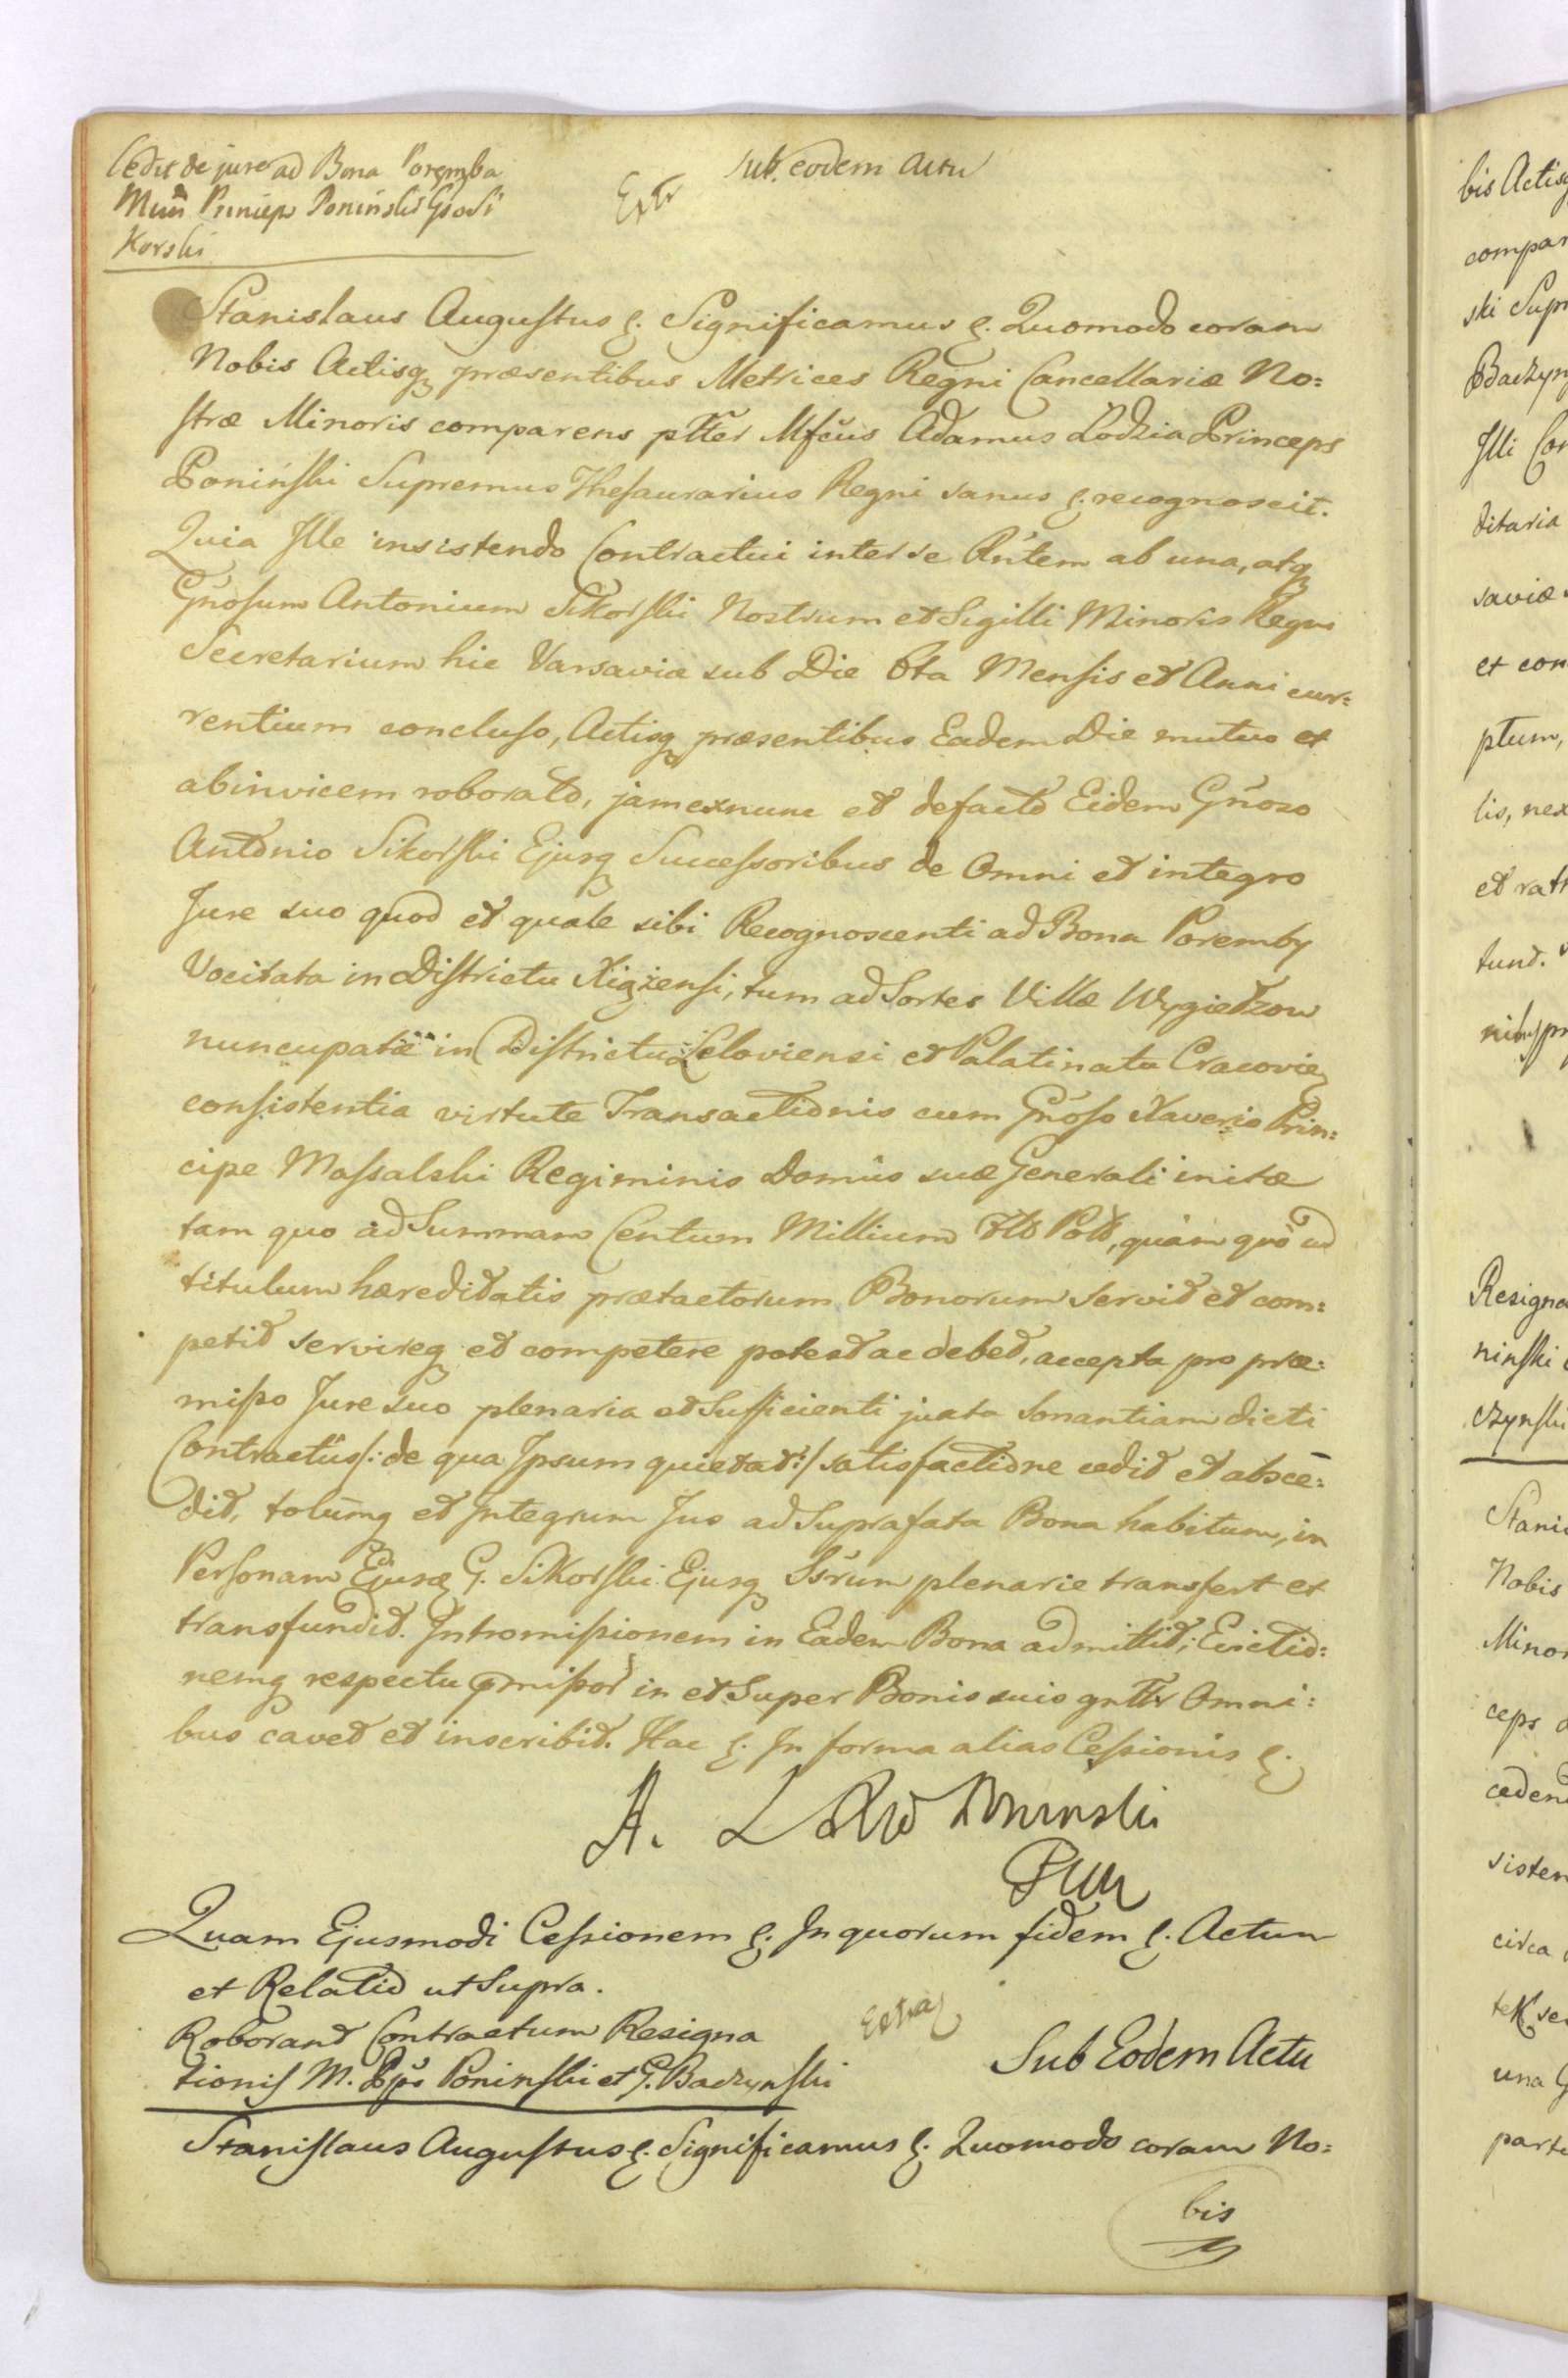 Cedit de jure ad Bona Poręmba
Princip Poninski Gso Si
Korski
Extr
sub eodem Actu
Stanislaus Augustus &. Significamus &. Quomodo coram
Nobis Actisq præsentibus Metrices Regni Cancellariæ No:
stræ Minoris comparens pltter Mfcus Adamus Lodzia Princeps
Poniński Supremus Thesaurarius Regni sanus &. recognoscit.
Quia Ille insistendo Contractui inter se Rntem ab una, atq
Gnosum Antonium Sikorski Nostrum et Sigilli Minoris Regni
Secretarium hic Varsaviæ sub Die 6ta Mensis et Anni cur:
rentium concluso, Actisq præsentibus Eadem Die mutuo et
abinvicem roborato, jam exnunc et defacto Eidem Gnoso
Antonio Sikorski Ejusq Successoribus de Omni et integro
Jure suo quod et quale sibi Recognoscenti ad Bona Poremby
Vocitata in Districtu Xiążensi, tum ad Sortes Villæ Wygiełzow
nuncupatæ in Districtu Leloviensi et Palatinatu Cracovien
consistentia virtute Transactionis cum Gnoso Xaverio Prin:
cipe Massalski Regiminis Domus suæ Generali initæ
tam quo ad Summam Centum Millium Flo Pol, quam quo ad
titulum hæreditatis prætactorum Bonorum servit et com:
petit servireq et competere potest ac debet, accepta pro præ:
misso Jure suo plenaria et Sufficienti juxta Sonantiam dicti
Contractus /: de qua Ipsum quietat :/ satisfactione cedit et absce:
dit, totumq et Integrum Jus ad Suprafata Bona habitum, in
Personam Ejusd G. Sikorski Ejusq Ssrum plenarie transfert et
transfundit. Intromissionem in Eadem Bona admittit; Evictio:
nemq respectu pmissor in et Super Bonis suis gnttr Omni:
bus cavet et inscribit. Hac &. In forma alias Cessionis &.
A. L Poninski
Quam Ejusmodi Cessionem &. In quorum fidem &. Actum
et Relatio ut Supra.
Roborant Contractum Resigna
tionis M. Pps Poninski et G. Baczynski
Extrad
Sub Eodem Actu
Stanislaus Augustus &. Significamus &. Quomodo coram No:
bis
bis Actisq
compar
ski Supr
Baczyn
Illi Con
ditaria
saviæ
et con
ptum,
lis, nex
et rat
tund.
Resigna
ninski
czynski
Stani
Nobis
Minor
ceps
cedend
sisten
circa
una G
parte